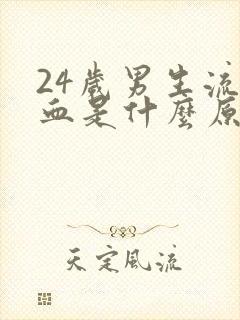 24歲男生流
血是什麼原
天定風流